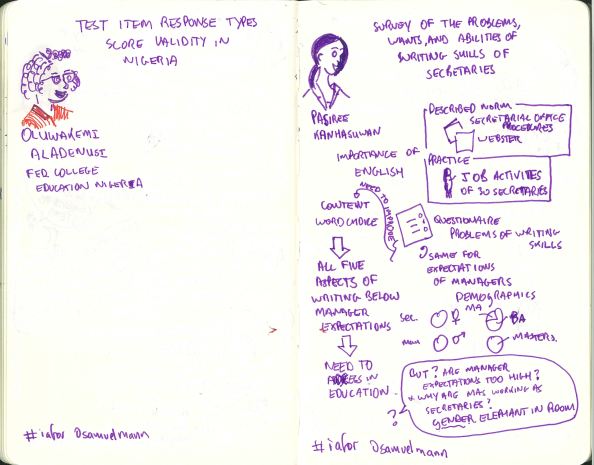 TEST ITEM RESPONSE TYPES
SCORE VALIDITY IN
NIGERIA
OLUWAKEMI
ALADENUSI
FED COLLEGE
EDUCATION NIGERIA
#iafor @samuelmann
SURVEY OF THE PROBLEMS,
WANTS, AND ABILITIES OF
WRITING SKILLS OF
SECRETARIES
PASIREE
KANHASUWAN
DESCRIBED NORM
SECRETARIAL OFFICE
PROCEDURES
WEBSTER
PRACTICE
JOB ACTIVITIES
OF 30 SECRETARIES
IMPORTANCE OF
ENGLISH
NEED TO IMPROVE
CONTENT
WORD CHOICE
QUESTIONAIRE
PROBLEMS OF WRITING
SKILLS
SAME FOR
EXPECTATIONS
OF MANAGERS
ALL FIVE
ASPECTS OF
WRITING BELOW
MANAGER
EXPECTATIONS
DEMOGRAPHICS
MA
SEC. ♀ BA
MAN ♂ MASTERS.
NEED TO
ADDRESS IN
EDUCATION.
BUT? ARE MANAGER
EXPECTATIONS TOO HIGH?
* WHY ARE MAS WORKING AS
SECRETARIES?
GENDER ELEPHANT IN ROOM
?
#iafor @samuelmann